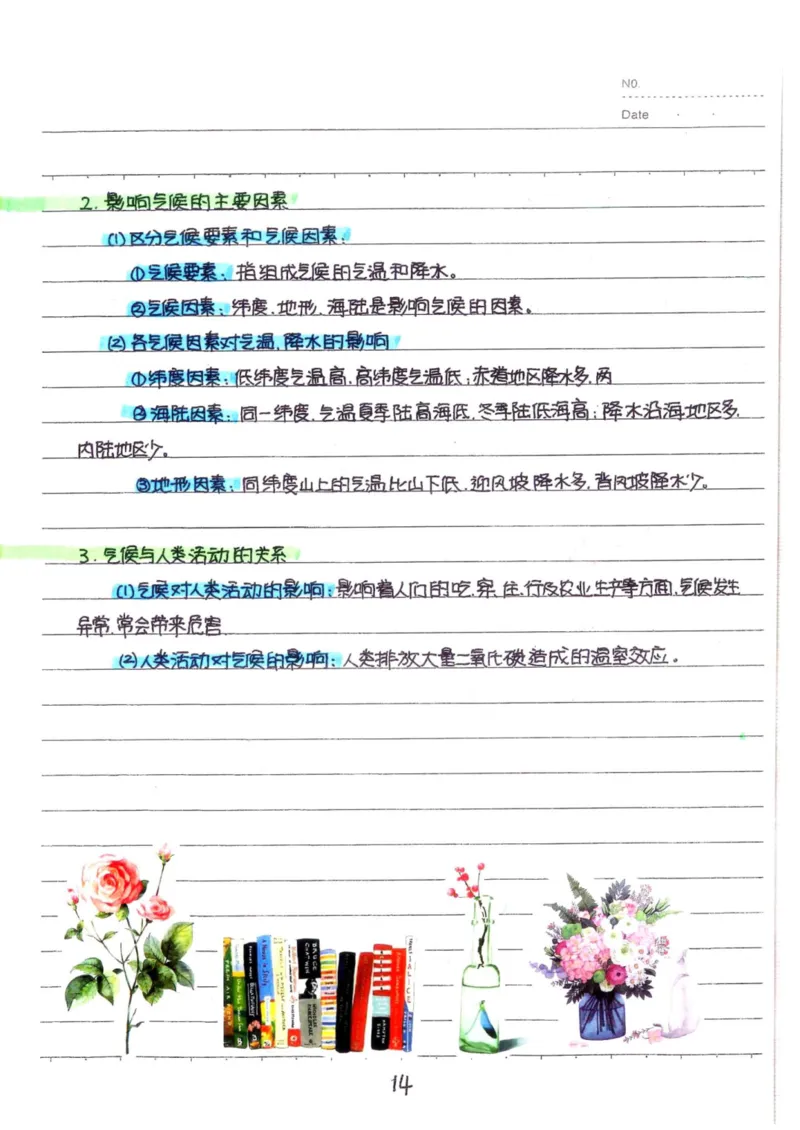 NO.
Date
2. 影响气候的主要因素
(1) 区分气候要素和气候因素:
①气候要素: 指组成气候的气温和降水。
②气候因素: 纬度、地形、海陆是影响气候的因素。
(2) 各气候因素对气温、降水的影响
①纬度因素: 低纬度气温高, 高纬度气温低; 赤道地区降水多, 两
②海陆因素: 同一纬度, 气温夏季陆高海低, 冬季陆低海高; 降水沿海地区多,
内陆地区少。
③地形因素: 同纬度山上的气温比山下低, 迎风坡降水多, 背风坡降水少。
3. 气候与人类活动的关系
(1) 气候对人类活动的影响: 影响着人们的吃、穿、住、行及农业生产等方面, 气候发生
异常, 常会带来危害
(2) 人类活动对气候的影响: 人类排放大量二氧化碳造成的温室效应。
14